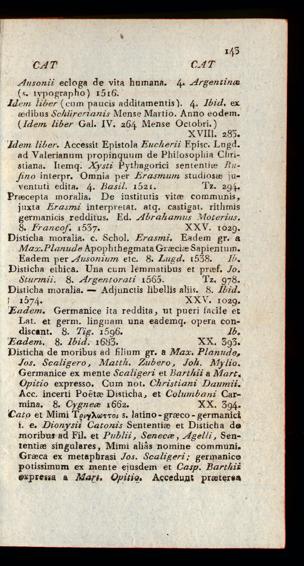 143
CAT CAT
Ausonii ecloga de vita humana. 4. Argentinæ
(s. typographo) 1516.
Idem liber (cum paucis additamentis). 4. Ibid. ex
ædibus Schürerianis Mense Martio. Anno eodem.
(Idem liber Gal. IV. 264 Mense Octobri.)
XVIII. 283.
Idem liber. Accessit Epistola Eucherii Episc. Lugd.
ad Valerianum propinquum de Philosophia Chri-
stiana. Itemq. Xysti Pythagorici sententiæ Ru-
fino interpr. Omnia per Erasmum studiosæ ju-
ventuti edita. 4. Basil. 1521. Tz. 294.
Præcepta moralia. De institutis vitæ communis,
juxta Erasmi interpretat. atq. castigat. rithmis
germanicis redditus. Ed. Abrahamus Moterius.
8. Francof. 1537. XXV. 1029.
Disticha moralia. c. Schol. Erasmi. Eadem gr. a
Max. Planude Apophthegmata Græciæ Sapientum.
Eadem per Ausonium etc. 8. Lugd. 1538. Ib.
Disticha ethica. Una cum lemmatibus et præf. Jo.
Sturmii. 8. Argentorati 1565. Tz. 978.
Disticha moralia. — Adjunctis libellis aliis. 8. Ibid.
1574. XXV. 1029.
Eadem. Germanice ita reddita, ut pueri facile et
Lat. et germ. linguam una eademq. opera con-
discant. 8. Tig. 1596. Ib.
Eadem. 8. Ibid. 1683. XX. 393.
Disticha de moribus ad filium gr. a Max. Planude,
Jos. Scaligero, Matth. Zubero, Joh. Mylio.
Germanice ex mente Scaligeri et Barthii a Mart.
Opitio expresso. Cum not. Christiani Daumii.
Acc. incerti Poëtæ Disticha, et Columbani Car-
mina. 8. Cygneæ 1662. XX. 394.
Cato et Mimi Τριγλωττοι s. latino-græco-germanici
i. e. Dionysii Catonis Sententiæ et Disticha de
moribus ad Fil. et Publii, Senecæ, Agelli, Sen-
tentiæ singulares, Mimi aliàs nomine communi.
Græca ex metaphrasi Jos. Scaligeri; germanice
potissimum ex mente ejusdem et Casp. Barthii
expressa a Mart. Opitio. Accedunt præterea